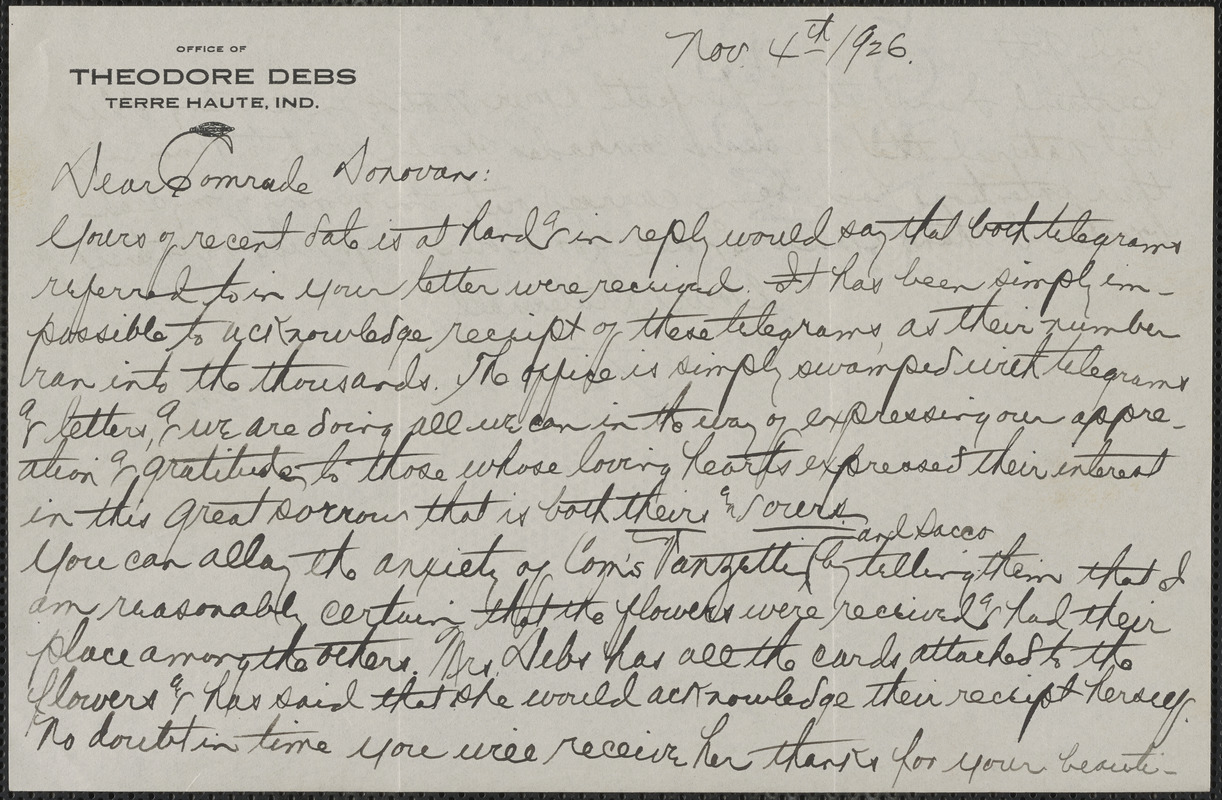 OFFICE OF
THEODORE DEBS
TERRE HAUTE, IND.
Nov. 4th 1926.
Dear Comrade Donovan:
Yours of recent date is at hand & in reply would say that both telegrams
referred to in your letter were received. It has been simply im-
possible to acknowledge receipt of these telegrams, as their number
ran into the thousands. The office is simply swamped with telegrams
& letters, & we are doing all we can in the way of expressing our appre-
ation & gratitude to those whose loving hearts expressed their interest
in this great sorrow that is both theirs and ours.
and Sacco
You can allay the anxiety of Com's Vanzetti by telling them that I
am reasonably certain that the flowers were received & had their
place among the others. Mrs. Debs has all the cards attached to the
flowers & has said that she would acknowledge their receipt herself.
No doubt in time you will receive her thanks for your beauti-